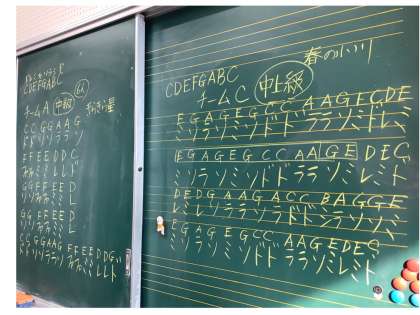 CDEFGABC
チームA 中級 きらきら星
CCGGAAG
ドドソソララソ
FFEEDDC
ファファミミレレド
GGFFEED
ソソファファミミレ
GGFFEED
ソソファファミミレ
CCGGAAGFFEEDDC
春の小川
CDEFGABC
チームC 中上級
EGAGEGCCAAGECDE
ミソラソミソドドララソミドレミ
EGAGEGCCAAGEDEC
ミソラソミソドドララソミレミド
DEDGAAGACCBAGGE
レミレソララソラドドシラソソミ
EGAGEGCCAAGEDEC
ミソラソミソドドララソミレミド